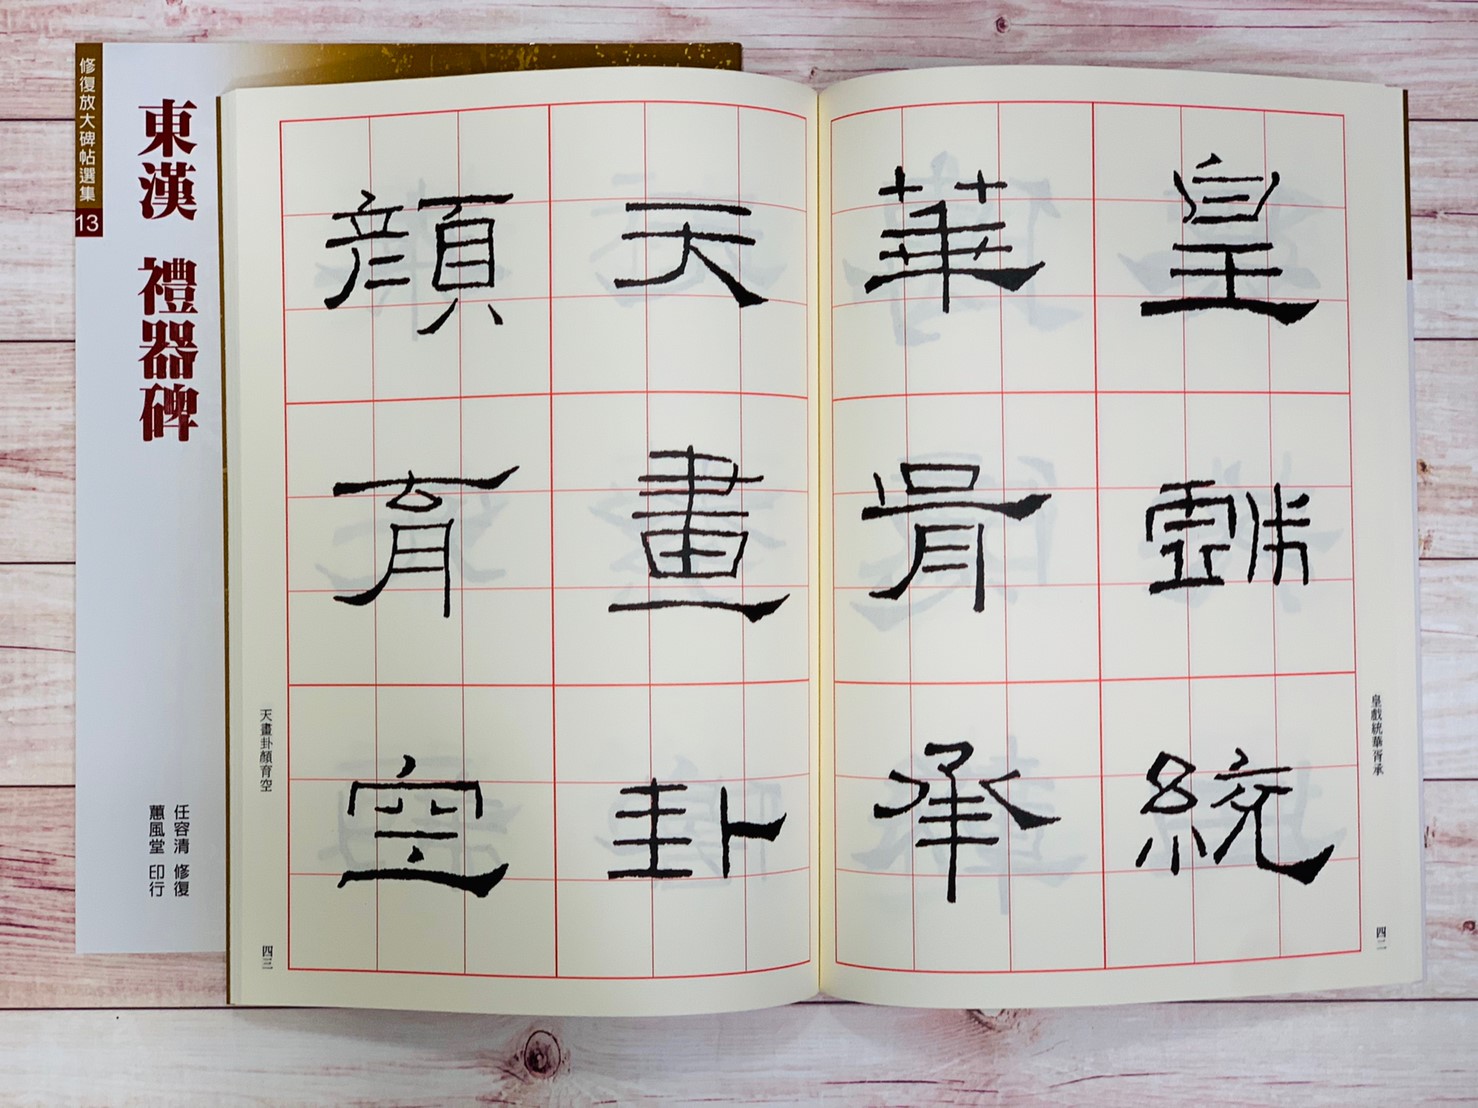 修復放大碑帖選集
13
東漢 禮器碑
任容清 修復
蕙風堂 印行
皇戲統
華胥承
天畫卦
顏育空
皇戲統華胥承
四二
天畫卦顏育空
四三